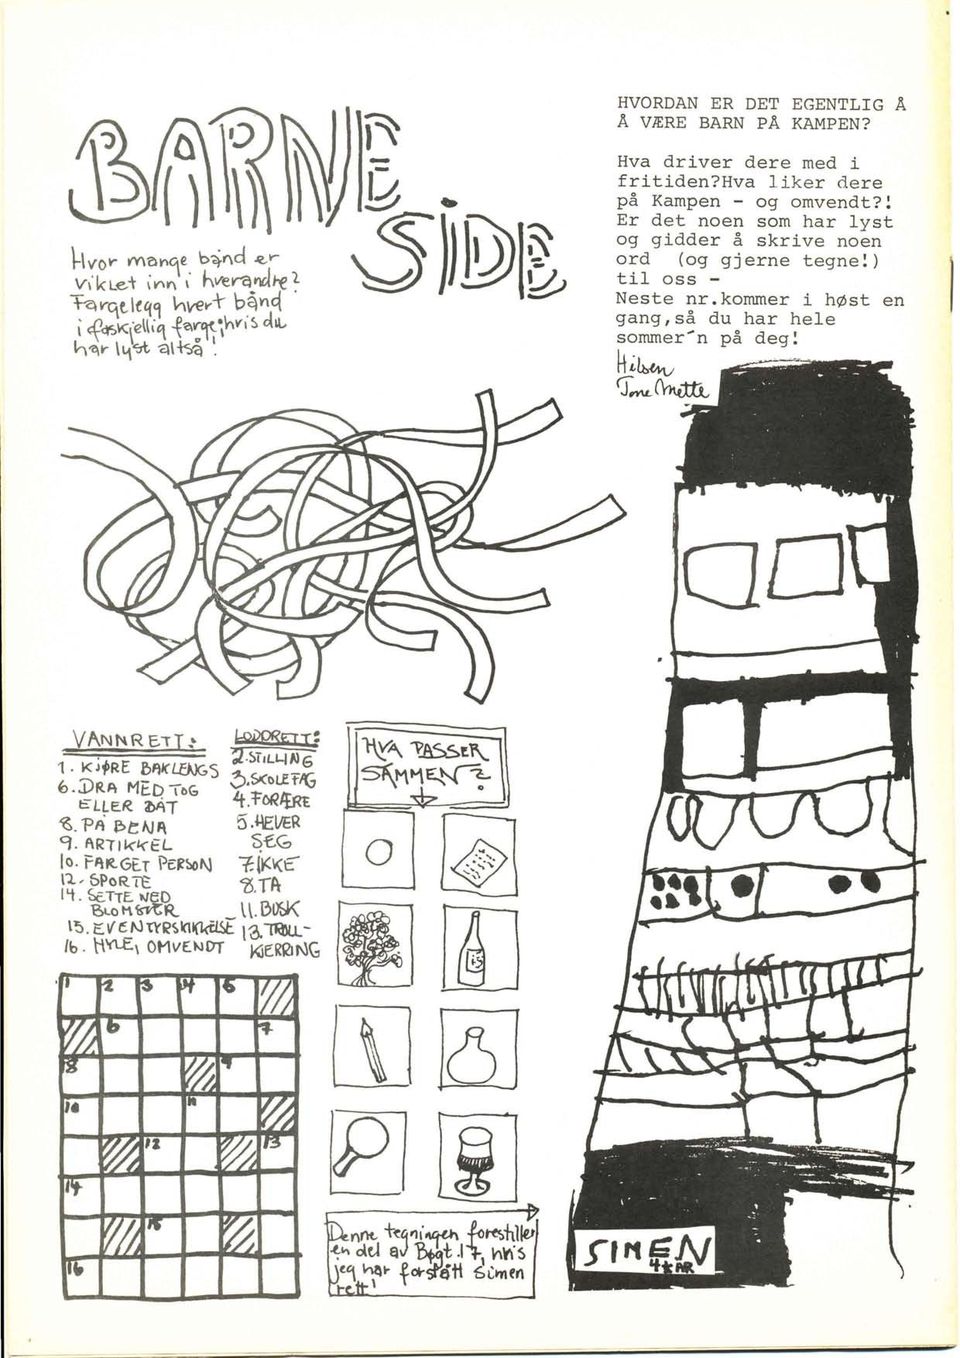 BARNE
SIDE
Hvor mange bånd er
viklet inn i hverandre?
Fargelegg hvert bånd
i forskjellig farge, hvis du
har lyst altså!
HVORDAN ER DET EGENTLIG Å
Å VÆRE BARN PÅ KAMPEN?
Hva driver dere med i
fritiden?Hva liker dere
på Kampen - og omvendt?!
Er det noen som har lyst
og gidder å skrive noen
ord (og gjerne tegne!)
til oss -
Neste nr.kommer i høst en
gang,så du har hele
sommer'n på deg!
Hilsen
Tone Mette
VANNRETT:
1. KJØRE BAKLENGS
6. DRA MED TOG
ELLER BÅT
8. PÅ BENA
9. ARTIKKEL
10. FARGET PERSON
12. SPORTE
14. SETTE NED
BLOMSTER
15. EVENTYRSKIKKELSE
16. HYLE, OMVENDT
LODDRETT:
2. STILLING
3. SKOLEFAG
4. FORÆRE
5. HEVER
SEG
7. IKKE
8. TA
11. BUSK
13. TROLL-
KJERRING
HVA PASSER
SAMMEN?
15
1 2 3 4 5
6 7
8 9
10 11
12 13
14
15
16
Denne tegningen forestiller
en del av Bøgt. 17, hvis
jeg har forstått Simen
rett!
SIMEN
4½ ÅR